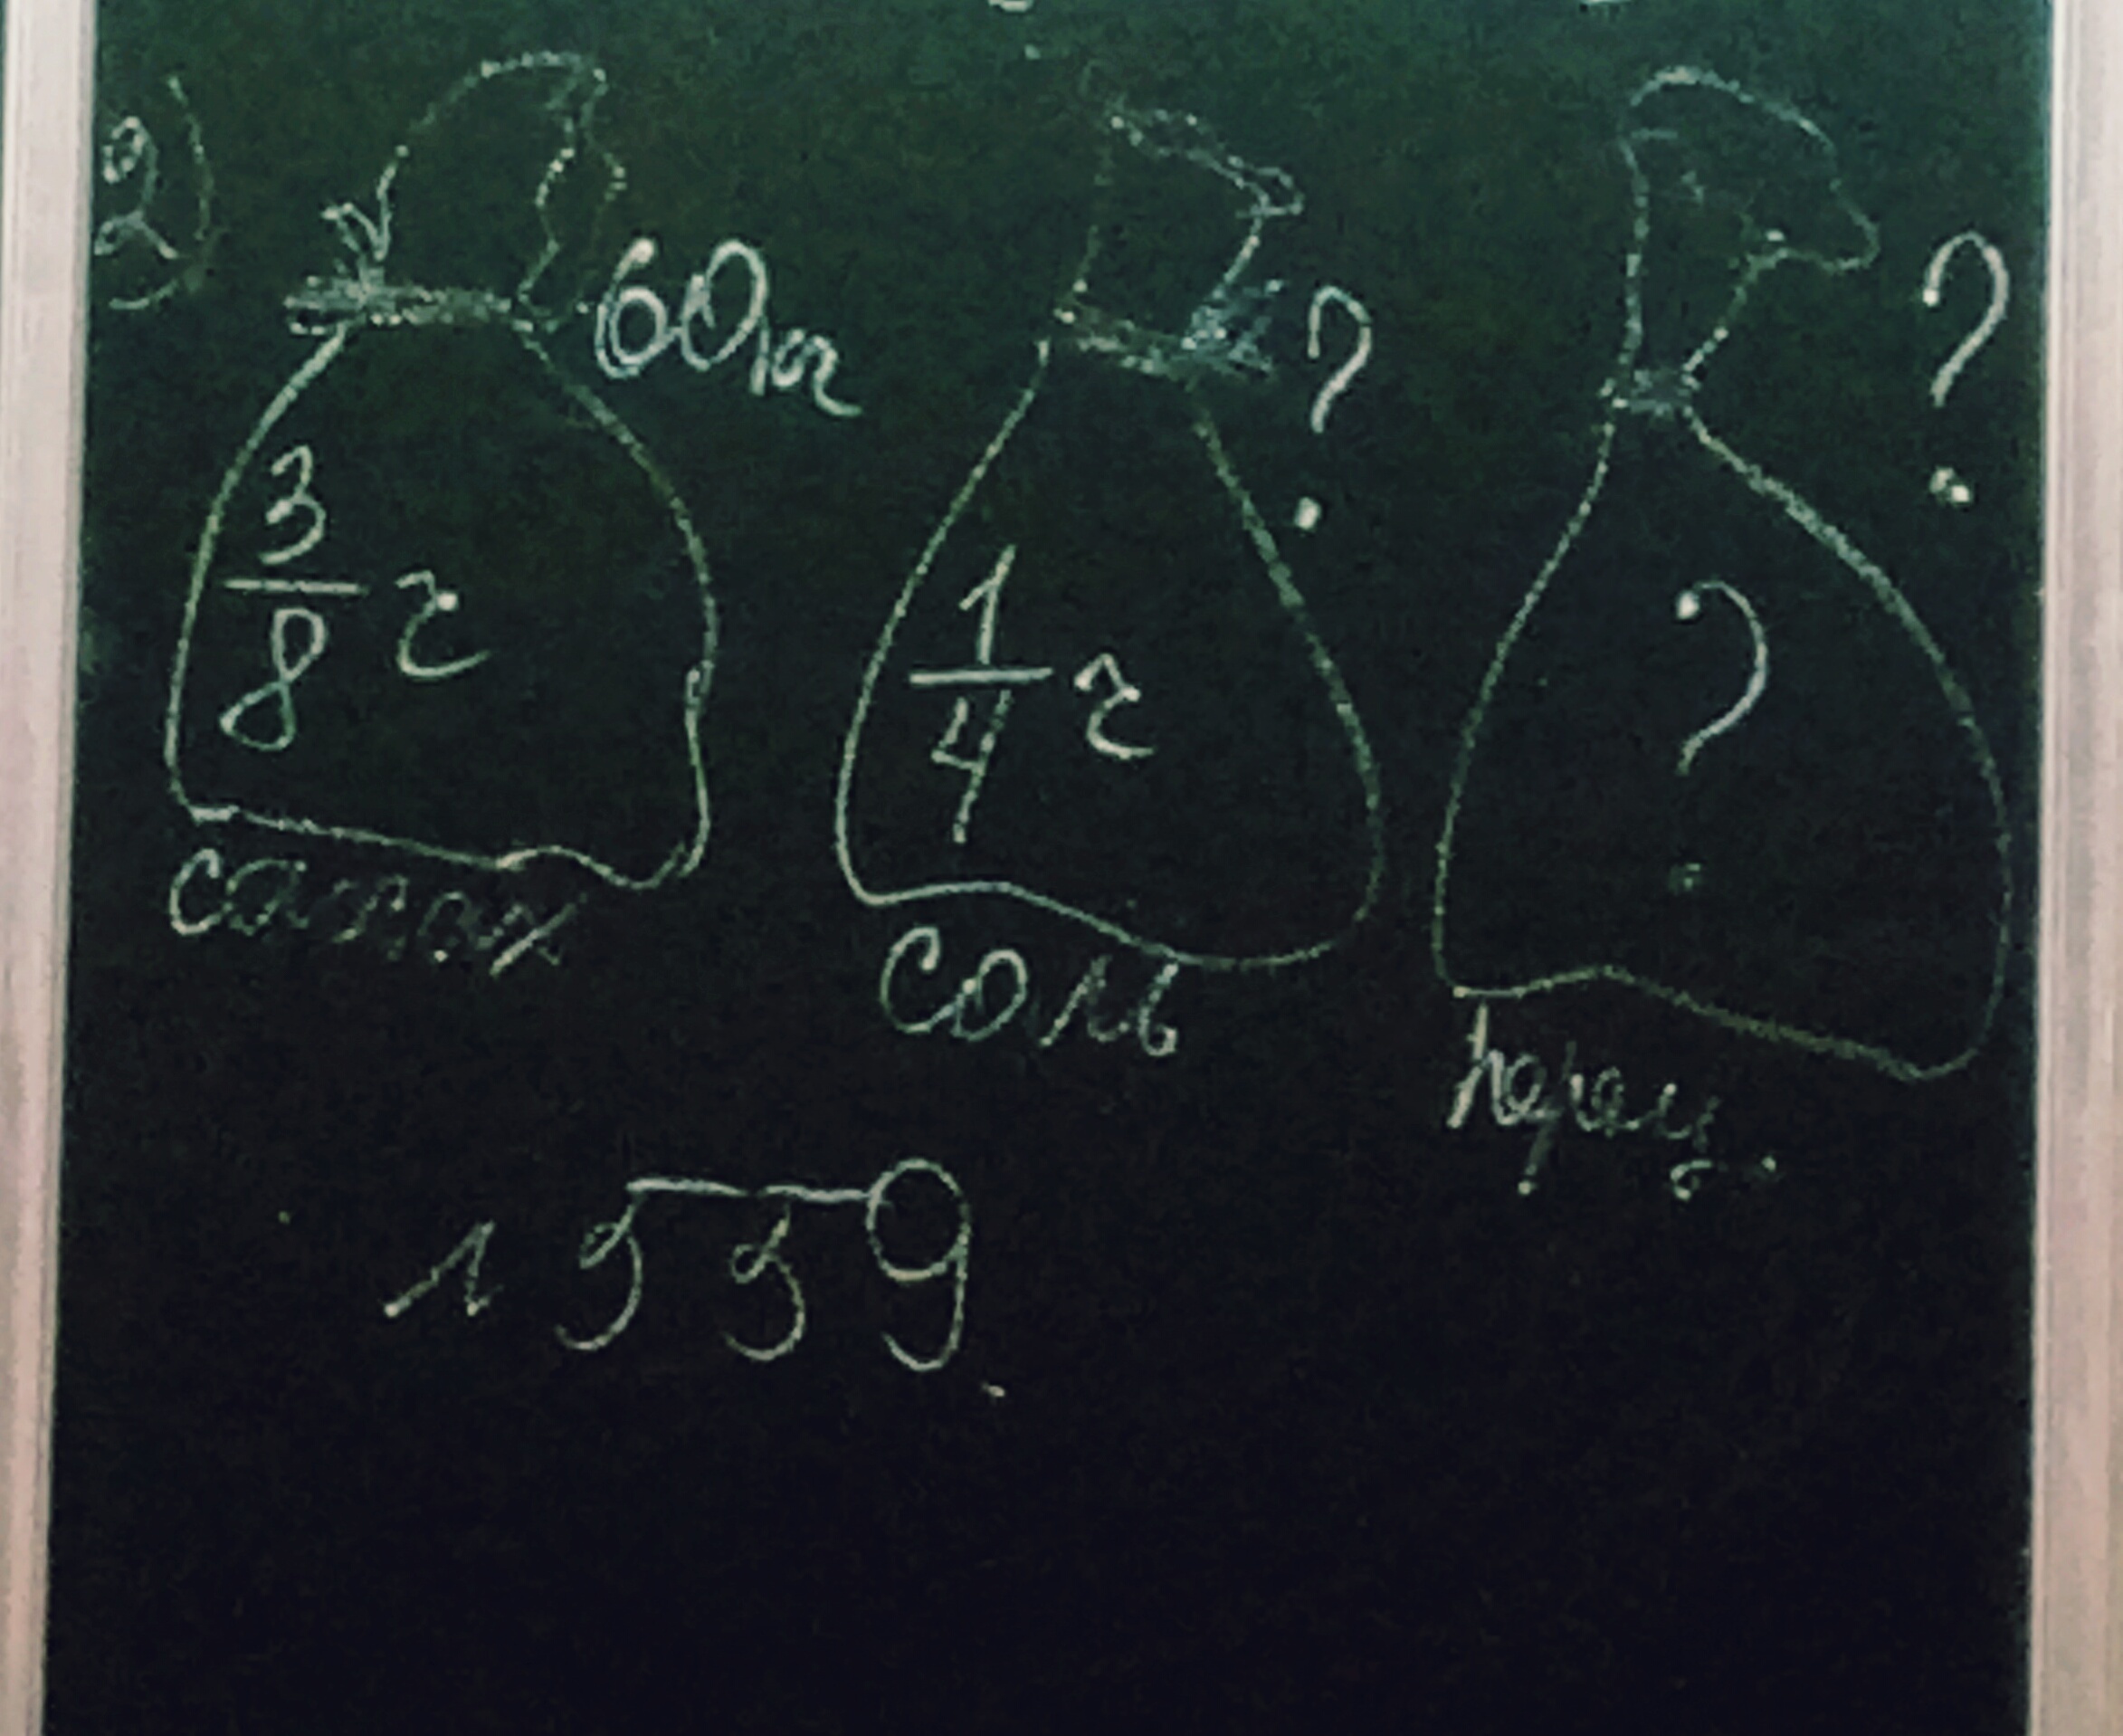 2)
60кг ? ?
3/8 г 1/4 г ?
сахар соль перец
1559